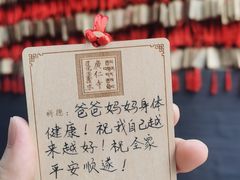 廣仁寺
祈愿：爸爸妈妈身体
健康！祝我自己越
来越好！祝全家
平安顺遂！